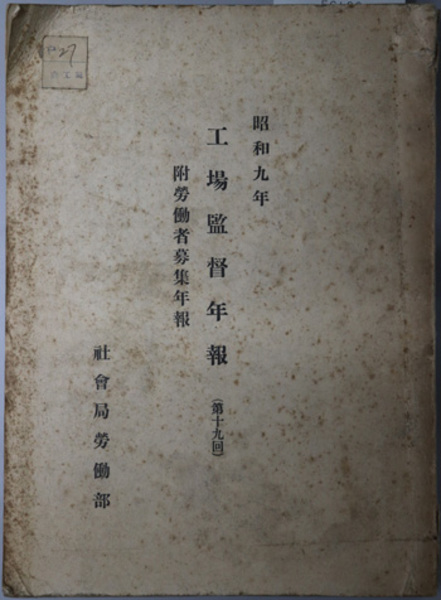 昭和九年
工場監督年報 (第十九回)
附勞働者募集年報
社會局勞働部
27